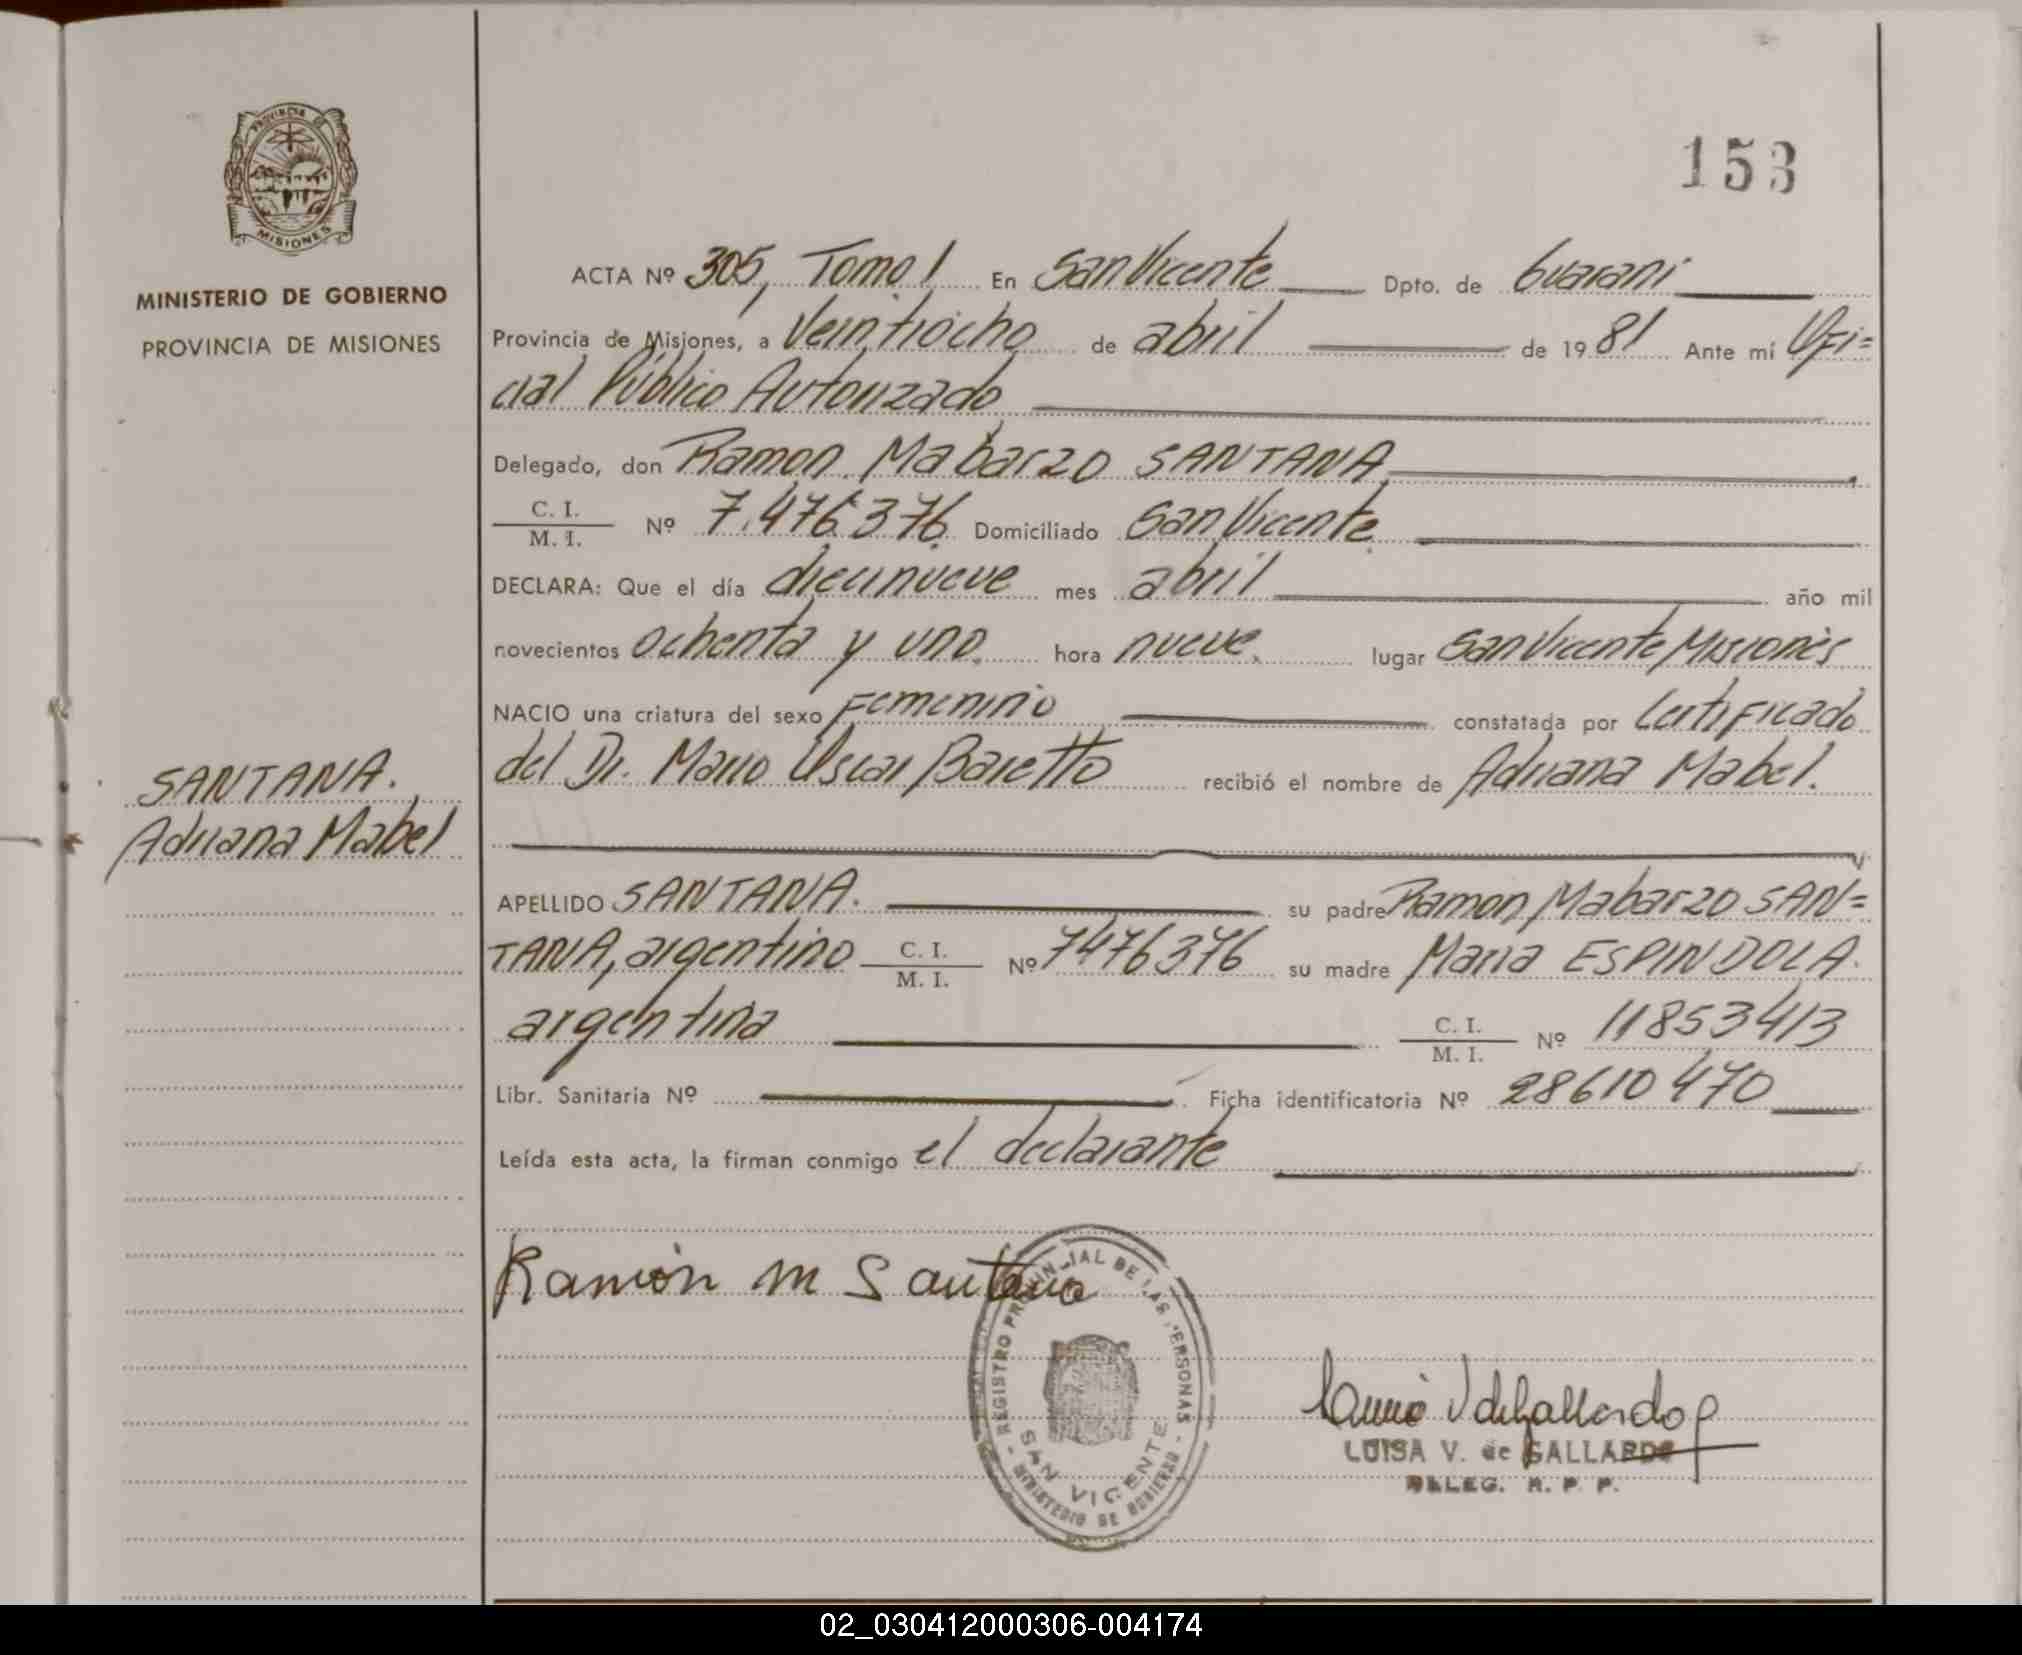 153
PROVINCIA DE
MISIONES
MINISTERIO DE GOBIERNO
PROVINCIA DE MISIONES
ACTA Nº 305, Tomo I En San Vicente Dpto. de Guarani
Provincia de Misiones, a Veintiocho de abril de 1981 Ante mí Ofi=
cial Público Autorizado
Delegado, don Ramon Mabarzo SANTANA
C. I.
M. I. Nº 7.476.376. Domiciliado San Vicente
DECLARA: Que el día diecinueve mes abril año mil
novecientos ochenta y uno. hora nueve. lugar San Vicente Misiones
NACIO una criatura del sexo Femenino constatada por Certificado
del Dr. Mario Oscar Baretto recibió el nombre de Adriana Mabel.
SANTANA.
Adriana Mabel
APELLIDO SANTANA. su padre Ramon Mabarzo SAN=
TANA, argentino C. I.
M. I. Nº 7476376 su madre Maria ESPINDOLA.
argentina C. I.
M. I. Nº 11853413
Libr. Sanitaria Nº Ficha identificatoria Nº 28610470
Leída esta acta, la firman conmigo el declarante
Ramón M Santana
REGISTRO PROVINCIAL DE LAS PERSONAS
SAN VICENTE
MINISTERIO DE GOBIERNO
LUISA V. de GALLARDO
DELEG. R. P. P.
02_030412000306-004174